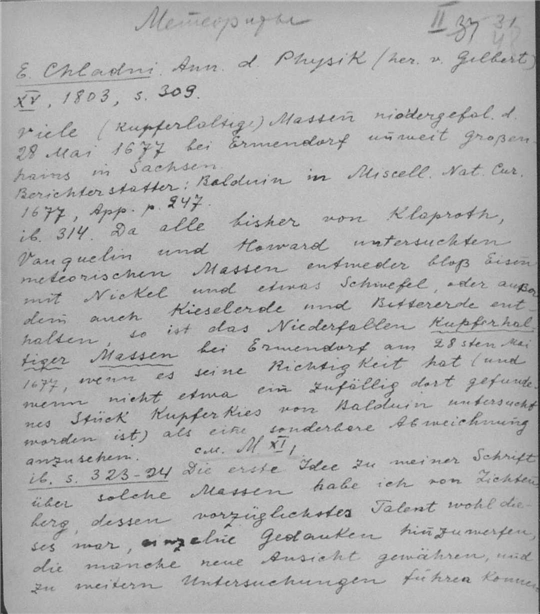 Метеориты
II 37 31
48
E. Chladni. Ann. d. Physik (her. v. Gilbert)
XV, 1803, s. 309.
Viele (kupferhaltige) Massen niedergefal. d.
28 Mai 1677 bei Ermendorf unweit Großen-
hains in Sachsen.
Berichterstatter: Balduin in Miscell. Nat. Cur.
1677, App. p. 247.
ib. 314. Da alle bisher von Klaproth,
Vauquelin und Howard untersuchten
meteorischen Massen entweder bloß Eisen
mit Nickel und etwas Schwefel, oder außer
dem auch Kieselerde und Bittererde ent-
halten, so ist das Niederfallen Kupferhal-
tiger Massen bei Ermendorf am 28sten Mai
1677, wenn es seine Richtigkeit hat (und
wenn nicht etwa ein zufällig dort gefunde-
nes Stück Kupferkies von Balduin untersucht
worden ist) als eine sonderbare Abweichung
anzusehen. см. M XI,
ib. s. 323-24 Die erste Idee zu meiner Schrift
über solche Massen habe ich von Lichten
berg, dessen vorzüglichstes Talent wohl die-
ses war, einzelne Gedanken hinzuwerfen,
die manche neue Ansicht gewähren, und
zu weitern Untersuchungen führen konnen